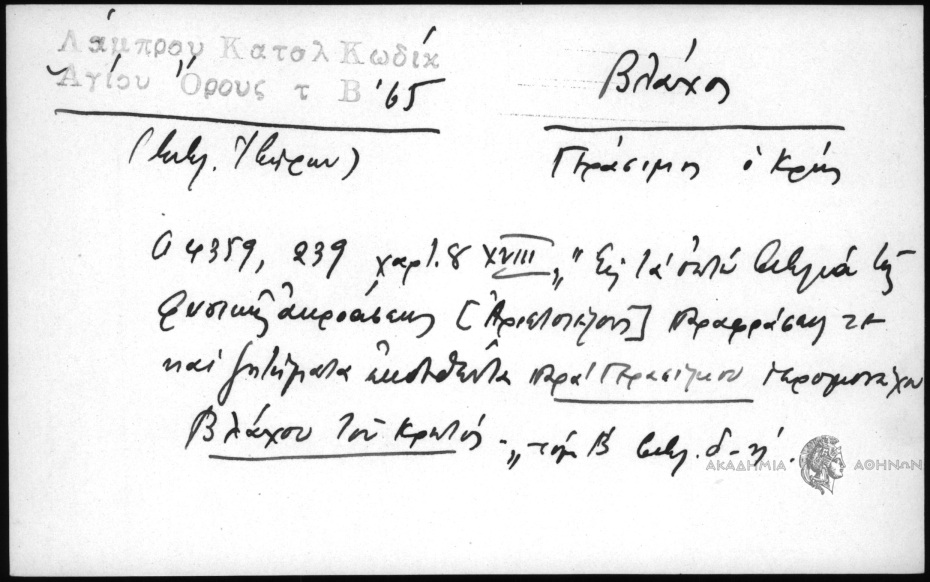 Λάμπρου Κατολ Κωδίκ
Αγίου Όρους τ Β '65
Βλάχος
(βιβλ. Ἰβήρων)
Γεράσιμος ὁ Κρής
4359, 239 χαρτ. 8 XVIII „" Εἰς τὰ ὀκτὼ βιβλία τῆς
φυσικῆς ἀκροάσεως [Ἀριστοτέλους] παραφράσεις τε
καὶ ζητήματα ἐκτεθέντα παρὰ Γερασίμου ἱερομονάχου
Βλάχου τοῦ Κρητός „ τόμ Β βιβλ. δ - η .
ΑΚΑΔΗΜΙΑ ΑΘΗΝΩΝ